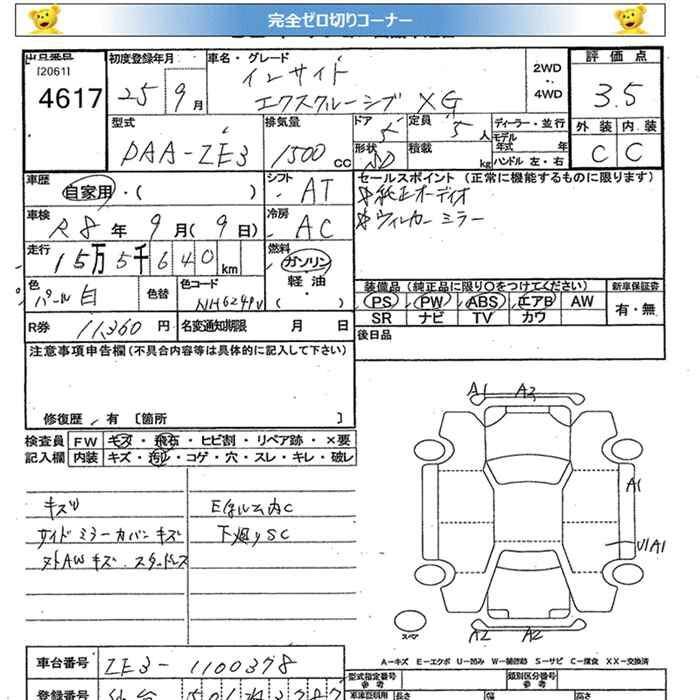 完全ゼロ切りコーナー
出品番号 初度登録年月 車名・グレード 2WD ・ 4WD 評価点
[2061]
4617 25年 9月 インサイト エクスクルーシブ XG 3.5
型式 排気量 ドア 定員 ディーラー・並行 外装 内装
DAA-ZE3 1500cc 5 5人 モデル年式 年 C C
形状 積載 kg ハンドル 左・右
車歴 自家用・( ) シフト AT セールスポイント (正常に機能するものに限ります)
純正オーディオ
ウィンカーミラー
車検 R8年 9月(9日) 冷房 AC
走行 15万5千640km 燃料 ガソリン
軽油
( )
色 パール白 色替 色コード
装備品 (純正品に限り○をつけてください) 新車保証書
PS PW ABS エアB AW 有・無
SR ナビ TV カワ
R券 11,360円 名変通知期限 月 日 後日品
注意事項申告欄 (不具合内容等は具体的に記入して下さい)
修復歴 有 [箇所 ]
検査員 FW キズ・飛石・ヒビ割・リペア跡・×要
記入欄 内装 キズ・汚れ・コゲ・穴・スレ・キレ・破レ
A1 A3
キズリ
サイドミラーカバーキズ
AWキズ スタッドレス
下廻りSC
A1
U1A1
スペア
A2 A2
A-キズ E-エクボ U-凹み W-補修跡 S-サビ C-腐食 XX-交換済
車台番号 ZE3-1100378
型式指定番号 類別区分番号
登録番号 仙台 501
長さ 幅 高さ